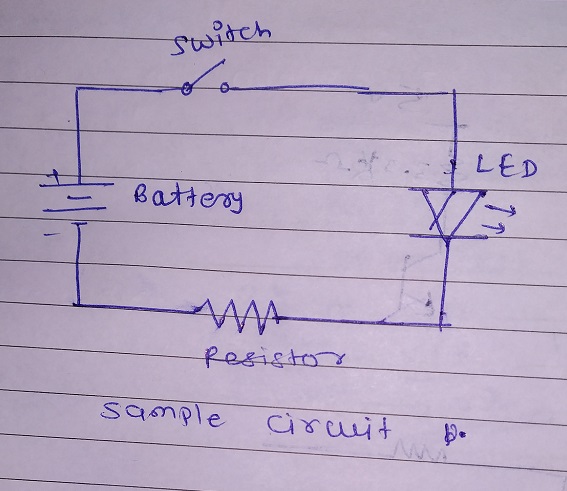 Switch
LED
+
Battery
-
Resistor
Sample circuit